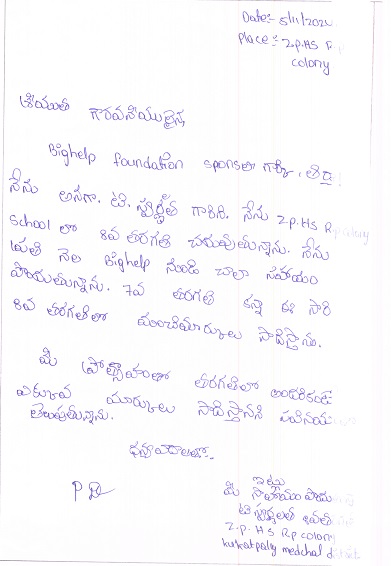 Date:- 5/11/202
place:- z.p.HS R
colony
శ్రీయుత
గౌరవనీయులైన,
Bighelp foundation sponsor గార్కి,
నేను అనగా. టి. గారికి. నేను z.p.HS Rp colony
School లో 8వ తరగతి చదువుతున్నాను. నేను
ప్రతి నెల Bighelp నుండి చాలా సహాయం
పొందుతున్నాను. 7వ తరగతి కన్నా ఈ సారి
8వ తరగతిలో మంచిమార్కులు సాధిస్తాను.
మీ ప్రోత్సాహంతో తరగతిలో అందరికంటే
ఎక్కువ మార్కులు సాధిస్తానని
తెలుపుతున్నాను.
ధన్యవాదాలతో..
ఇట్లు
మీ సహాయం
టి
z.p. HS Rp colony
kukatpally medchal